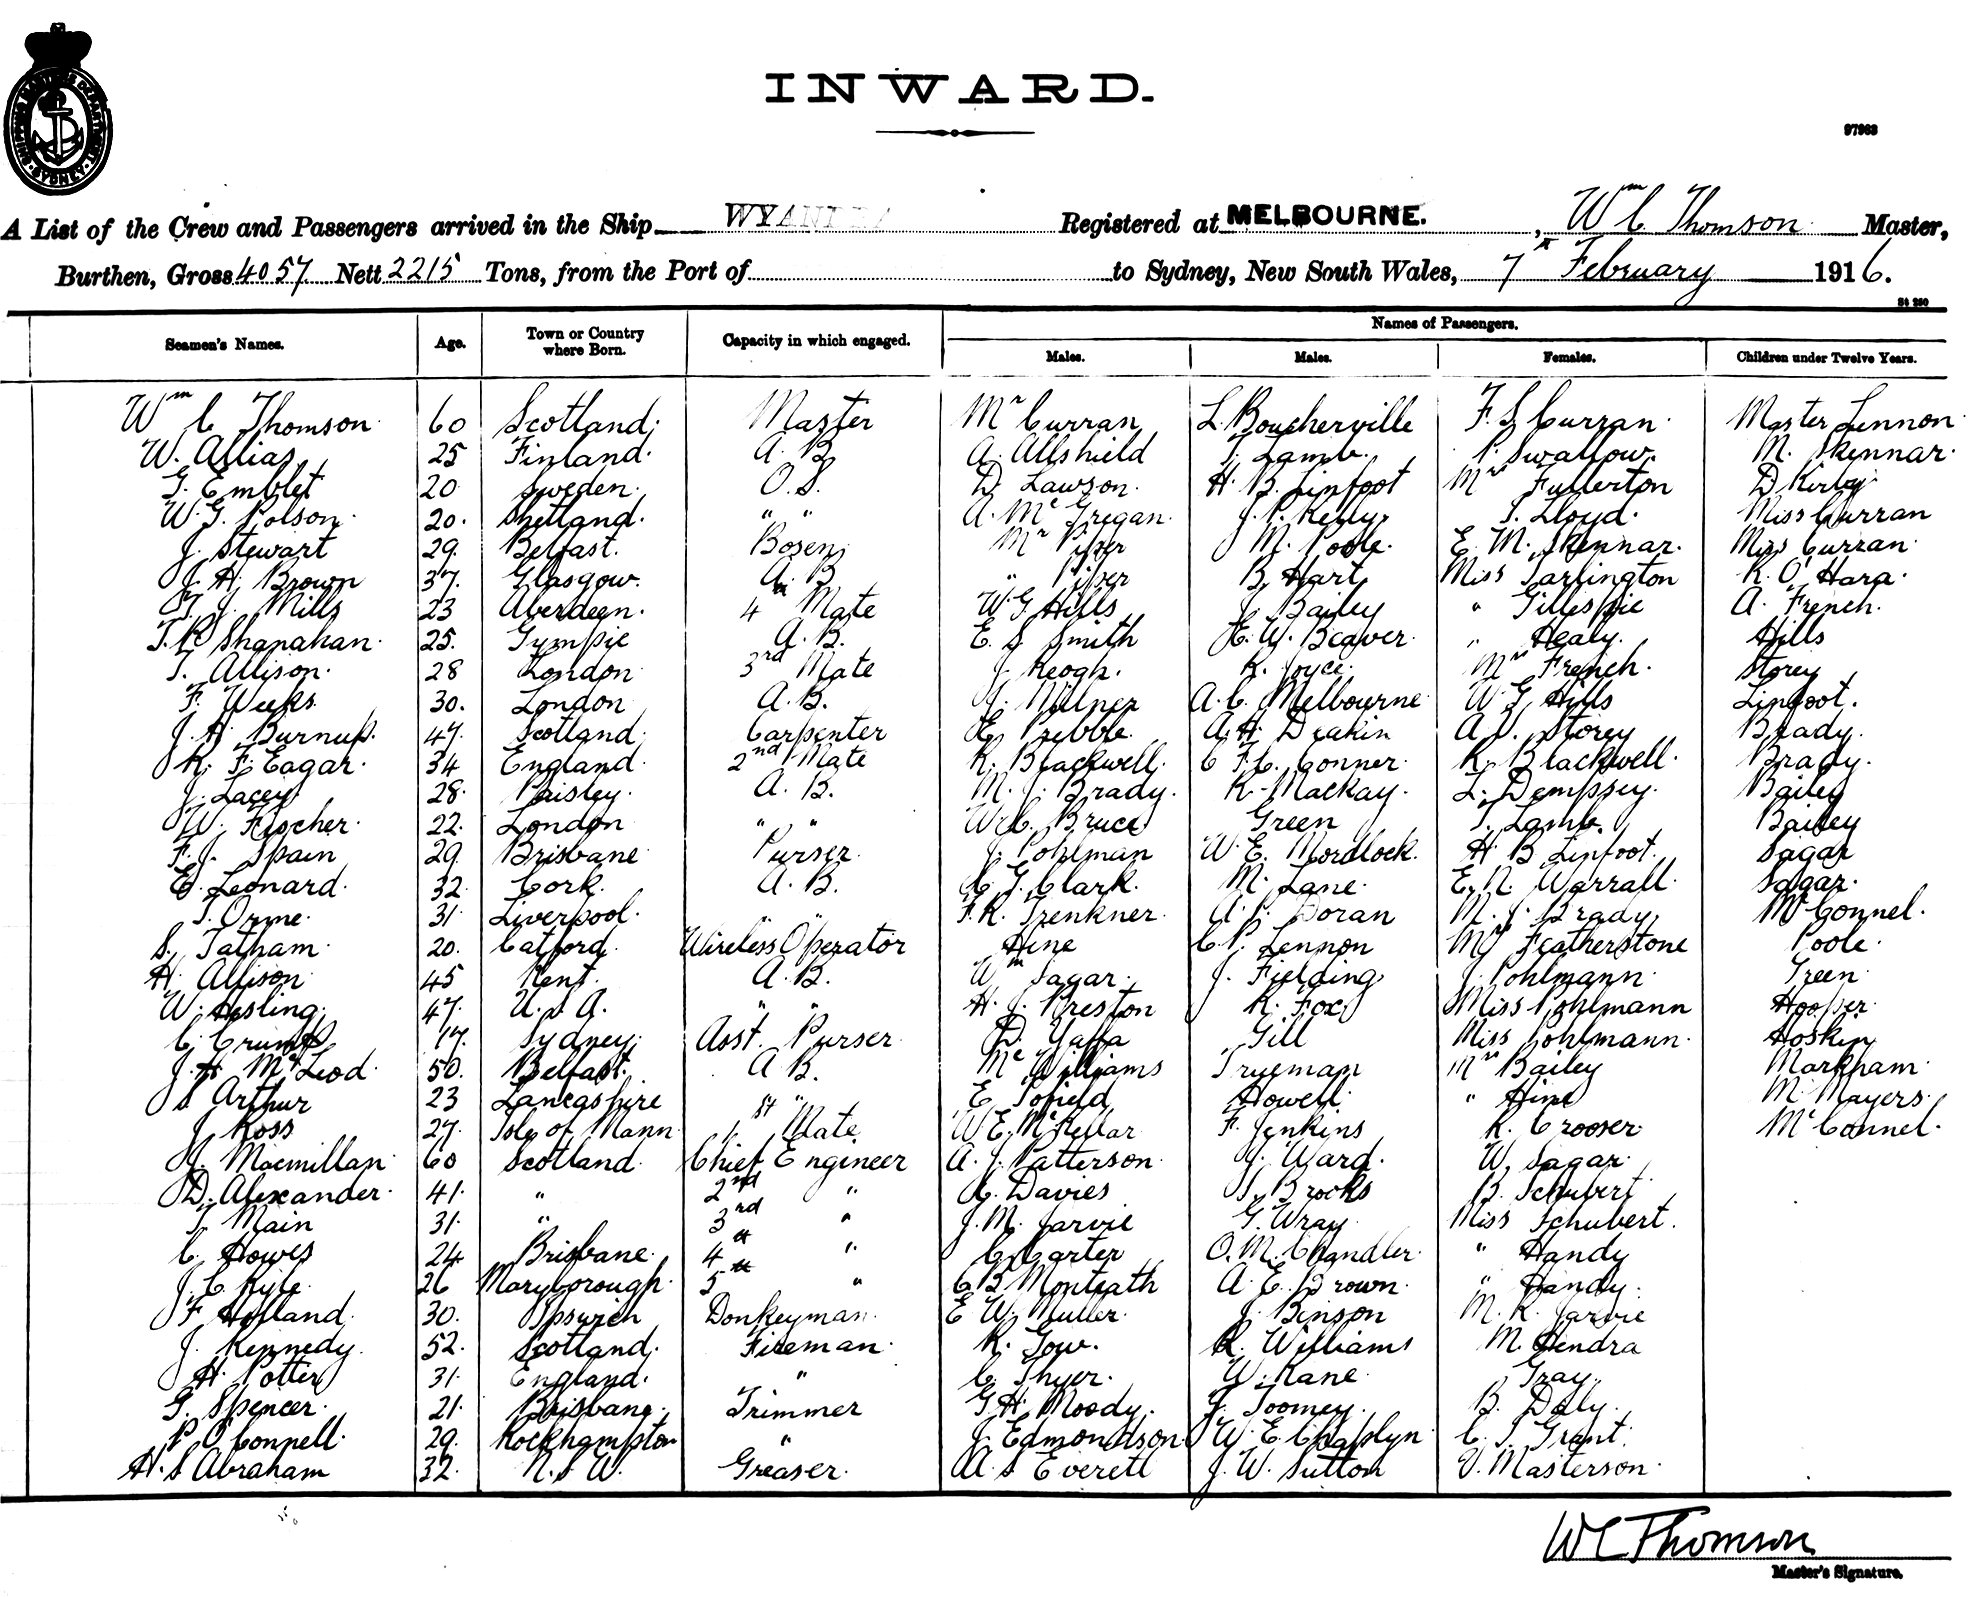 SHIPPING MASTER'S DEPARTMENT · SYDNEY ·
INWARD.
97963
A List of the Crew and Passengers arrived in the Ship WYANDRA Registered at MELBOURNE. , Wm C Thomson Master,
Burthen, Gross 4057 Nett 2215 Tons, from the Port of to Sydney, New South Wales, 7th February 1916.
St 250
Names of Passengers.
Seamen's Names. Age. Town or Country where Born. Capacity in which engaged. Males. Males. Females. Children under Twelve Years.
Wm C Thomson 60 Scotland Master Mr Curran L. Boucherville F. S. Curran Master Lennon
W. Allias 25 Finland A. B. A. Allshield T. Lamb. Swallow. M. Skennar.
G. Emblet 20 Sweden. O.S. D. Lawson. H. B. Linfoot Mrs Fullerton D Kirby
W. G. Polson. 20. Shetland. " " A. McGregan. J. P. Kelly. T. Lloyd. Miss Curran
J. Stewart 29. Belfast. Bosen Mr Piper M. Poole. E. M. Skennar. Miss Curran
J. H. Brown 37. Glasgow. A. B. " Piper B. Hart Miss Tarlington K. O'Hara.
T. J. Mills 23 Aberdeen. 4th Mate W G Hills J. Bailey " Gillespie A. French.
T. R. Shanahan. 25. Gympie A. B. E. S. Smith H. W. Beaver. " Healy. Hills
T. Allison. 28 London 3rd Mate J. Keogh. K. Joyce. Mrs French. Storey
F. Weeks. 30. London A. B. J. Milner A. C. Melbourne W. G. Hills Linfoot.
J. H. Burnup. 47. Scotland. Carpenter E. Prebble. A. H. Deakin A. V. Storey Brady.
R. F. Eagar. 34 England 2nd Mate R. Blackwell. C F. C. Conner. R. Blackwell. Brady.
J. Lacey 28. Paisley. A. B. M. J. Brady. R. Mackay. L. Dempsey. Bailey
W. Fischer. 22. London " " W C. Bruce Green T. Lamb. Bailey
F. J. Spain 29. Brisbane Purser. J. Pohlman W. E. Mordlock. H B Linfoot. Sagar
E. Leonard. 32. Cork. A. B. C. G. Clark. M. Lane. E. N. Warrall. Sagar.
T. Orme. 31. Liverpool. " " F. R. Trenkner. A. P. Doran M. J. Brady. McConnel.
S. Tatham. 20. Catford. Wireless Operator Hine C. P. Lennon Mrs Featherstone Poole.
H. Allison 45 Kent. A. B. Wm Sagar. J. Fielding J. Pohlmann. Green
W. Hesling. 47. U. S A. " " H. J. Preston R. Fox Miss Pohlmann Hooper
C. Crump 17. Sydney. Asst. Purser. D. Yaffa Gill Miss Pohlmann. Hoskin
J. H McLeod. 50. Belfast. A B. McWilliams Trueman Mrs Bailey Markham
S Arthur 23 Lancashire " " E Tofield Howell. " Hine M. Mayers.
J Ross 27. Isle of Mann. 1st Mate W E. McKellar F. Jenkins K. Crooser. McConnel.
J. Macmillan. 60 Scotland. Chief Engineer A. J. Patterson. J. Ward. W. Sagar.
D. Alexander. 41. " 2nd " C. Davies T. Brooks B. Schubert
T. Main 31. " 3rd " J. M. Jarvie G. Wray. Miss Schubert.
C. Howes 24 Brisbane. 4th " C. Carter O. M. Chandler. " Handy
J. C Kyle. 26 Maryborough. 5th " C B Monteath A. E. Brown. " Handy.
F Holland. 30. Ipswich Donkeyman. E W. Muller. J. Benson M. K. Jarvie
J. Kennedy. 52. Scotland. Fireman. R. Gow. R. Williams M. Hendra
H Potter 31. England. " C. Thyer. W. Kane. Gray.
G. Spencer. 21. Brisbane. Trimmer G. H. Moody. J. Toomey. B. Daly.
P. O'Connell. 29. Rockhampton " J. Edmondson W. E. Chaplyn C. T. Grant.
H. S Abraham 32. N. S W. Greaser. A S Everett J. W. Sutton V. Masterson.
W C Thomson
Master's Signature.